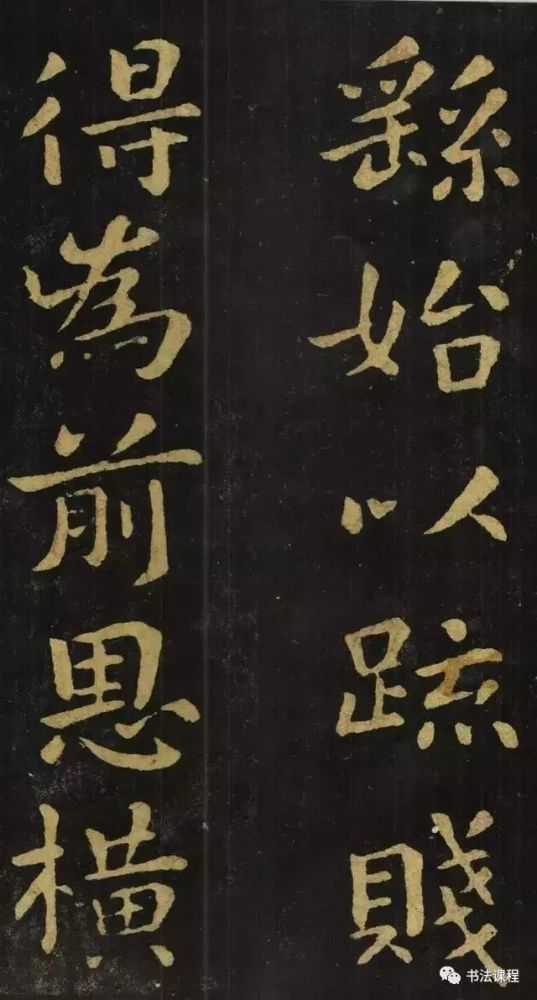 繇始以疏賤
得為前恩橫
书法课程